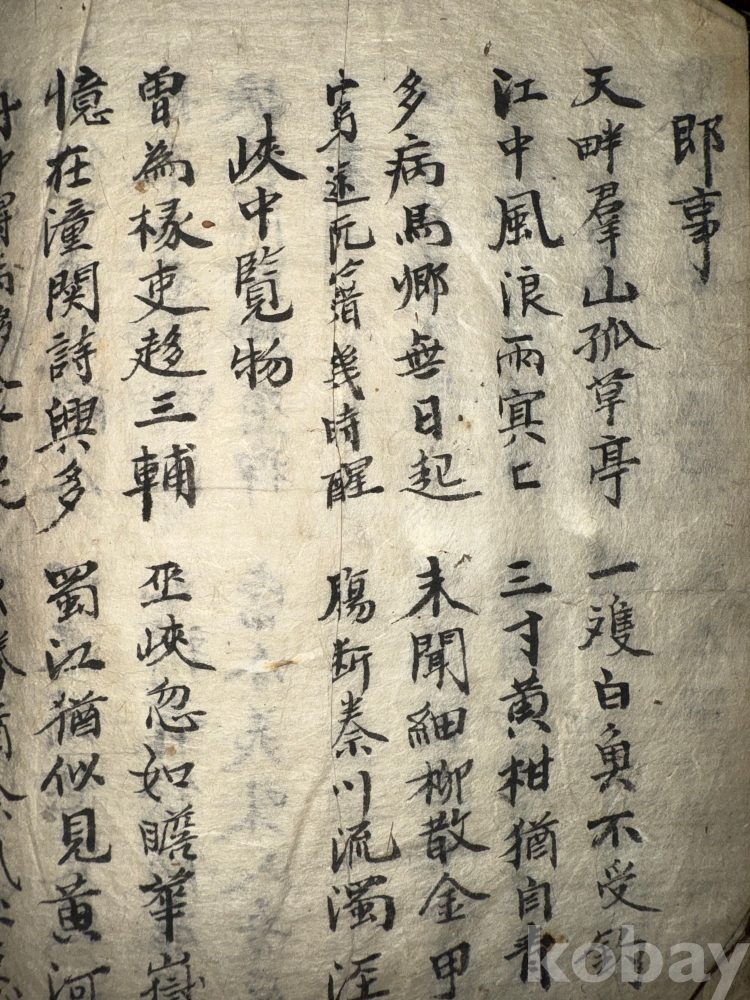 即事
天畔羣山孤草亭 一雙白魚不受釣
江中風浪雨冥〻 三寸黄柑猶自青
多病馬卿無日起 未聞細柳散金甲
窮途阮籍幾時醒 膓断秦川流濁涇
峽中覽物
曾為椽吏趍三輔 巫峽忽如瞻華嶽
憶在潼関詩興多 蜀江猶似見黄河
kobay